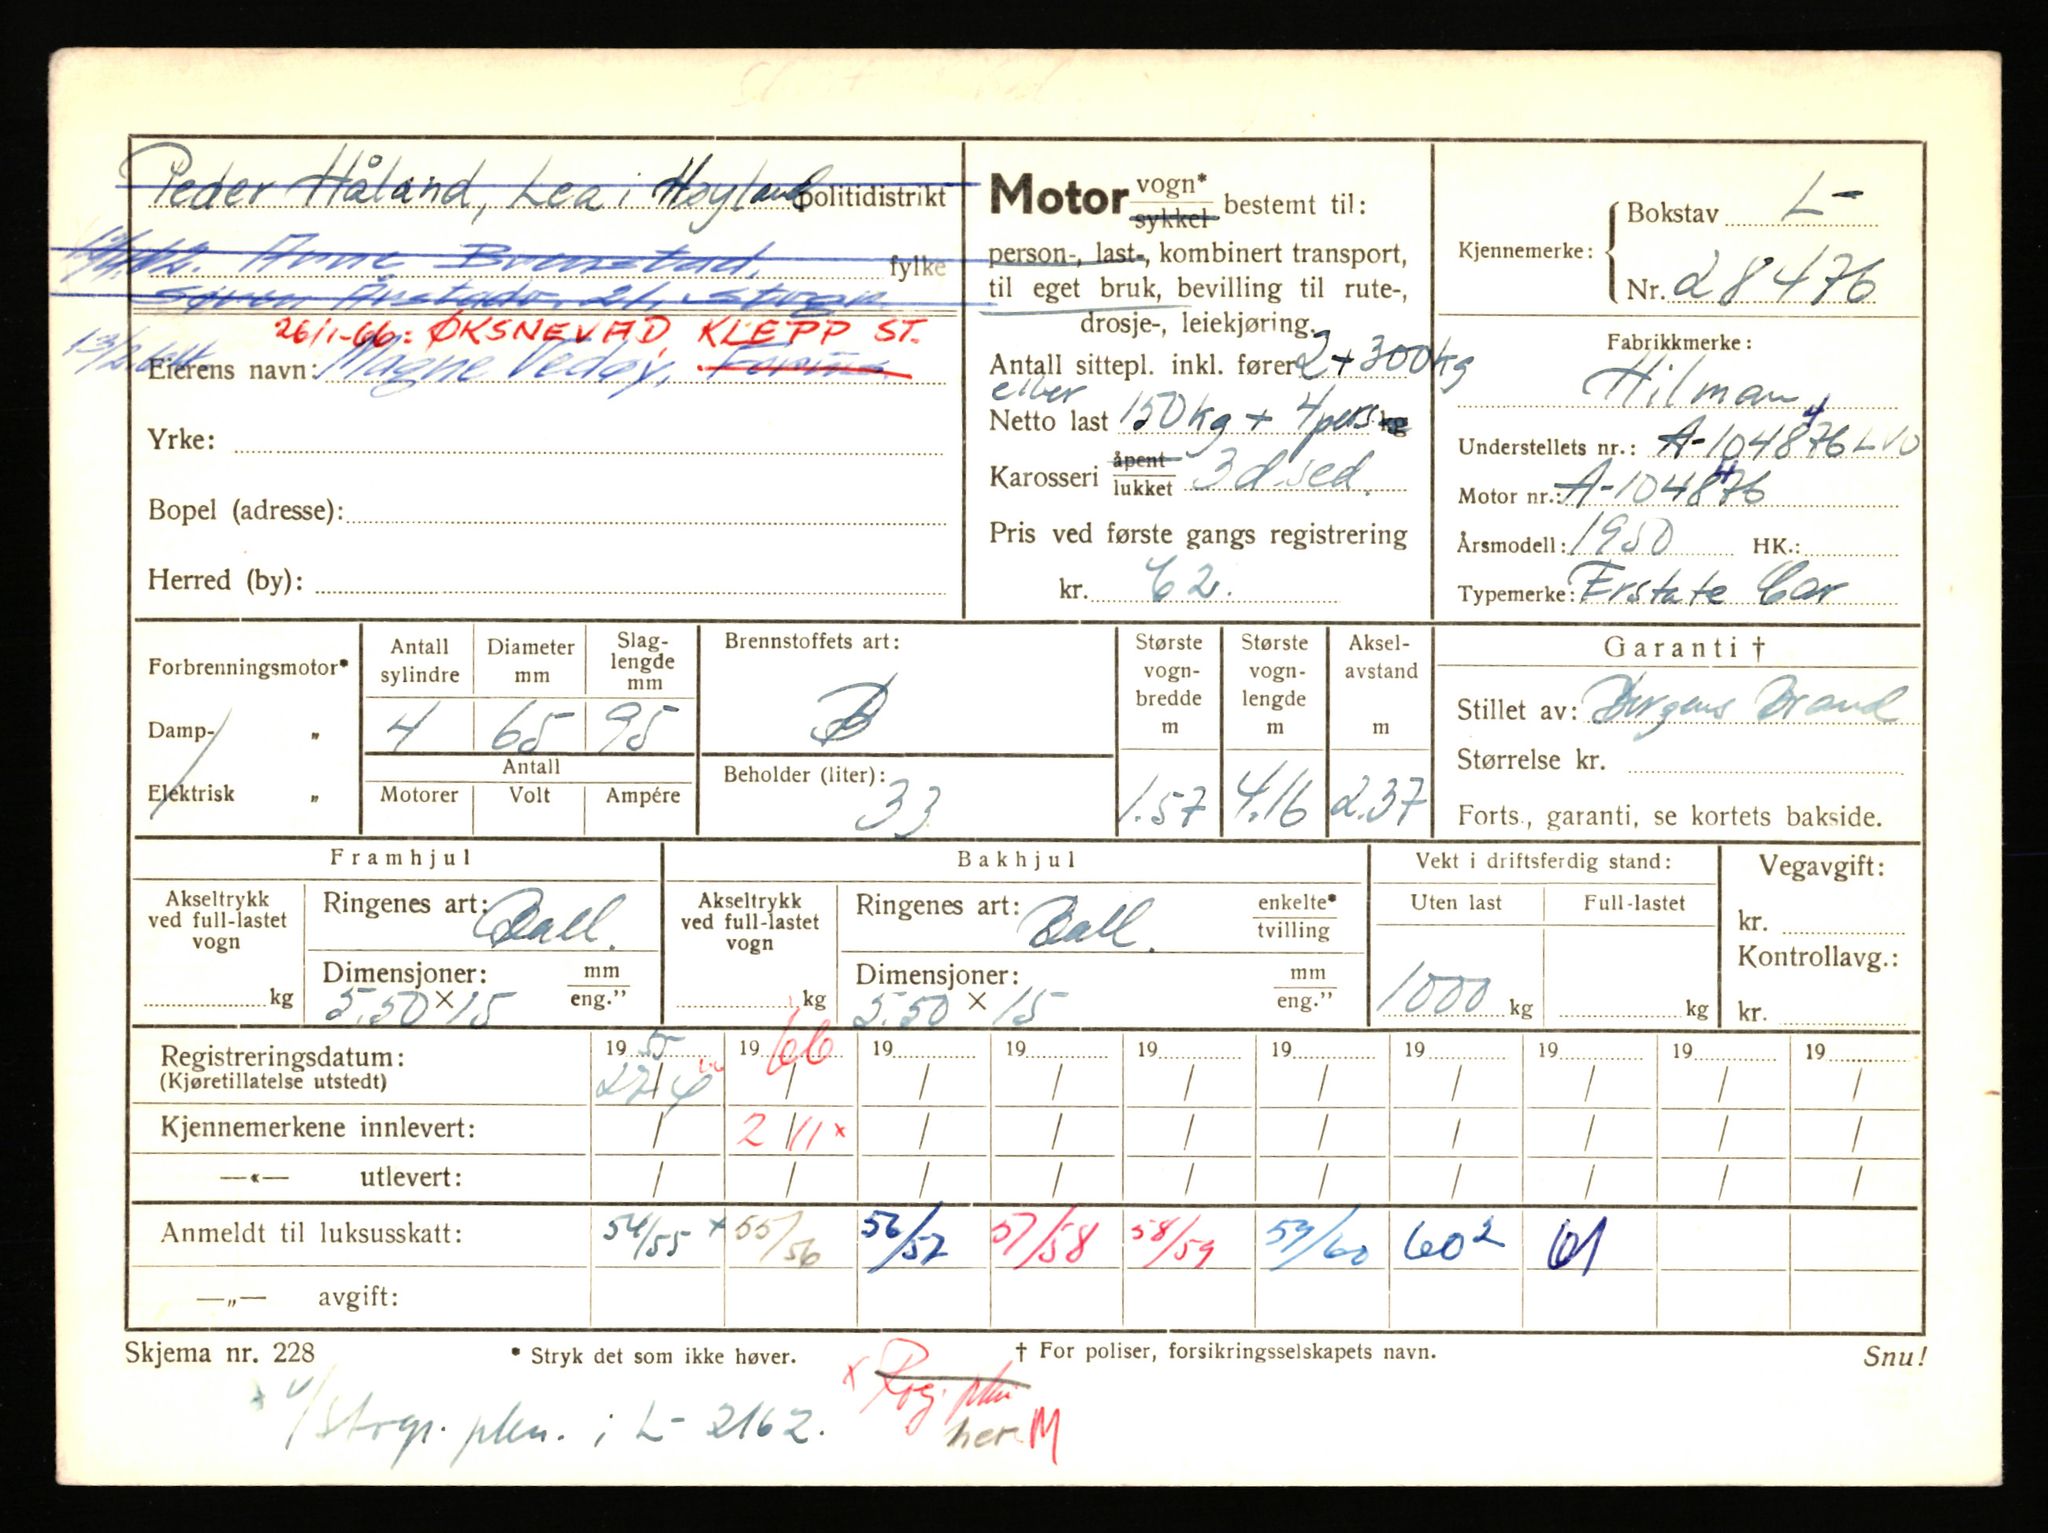 Peder Håland, Lea i Høyland politidistrikt
Anne Brenstad. fylke
26/1-66: ØKSNEVAD, KLEPP ST.
Eierens navn: Magne Vedøy,
Yrke:
Bopel (adresse):
Herred (by):
Motor vogn* sykkel bestemt til:
person-, last-, kombinert transport,
til eget bruk, bevilling til rute-,
drosje-, leiekjøring.
Antall sittepl. inkl. fører 2 + 300 kg
eller
Netto last 150 kg + 4 pers kg
Karosseri åpent lukket 3d.sed.
Pris ved første gangs registrering
kr. 62.
Kjennemerke: Bokstav L-
Nr. 28476
Fabrikkmerke:
Hilman
Understellets nr.: A-104876 LVO
4
Motor nr.: A-104876
4
Årsmodell: 1950 HK.:
Typemerke: Erstate Car
Forbrenningsmotor*
Damp- „
Elektrisk „
Antall sylindre Diameter mm Slag-lengde mm
4 65 95
Antall
Motorer Volt Ampére
Brennstoffets art:
B
Beholder (liter):
33
Største vogn-bredde m
1.57
Største vogn-lengde m
4.16
Aksel-avstand m
2.37
Garanti †
Stillet av: Bergens Brand
Størrelse kr.
Forts., garanti, se kortets bakside.
Framhjul
Akseltrykk ved full-lastet vogn
kg
Ringenes art: Ball.
Dimensjoner: mm eng."
5.50 × 15
Bakhjul
Akseltrykk ved full-lastet vogn
kg
Ringenes art: Ball. enkelte* tvilling
Dimensjoner: mm eng."
5.50 × 15
Vekt i driftsferdig stand:
Uten last Full-lastet
1000 kg kg
Vegavgift:
kr.
Kontrollavg.:
kr.
Registreringsdatum: 19 55 19 66 19 19 19 19 19 19 19 19
(Kjøretillatelse utstedt) 27/4 / / / / / / / / /
Kjennemerkene innlevert: / 2/11 x / / / / / / / /
—«— utlevert: / / / / / / / / / /
Anmeldt til luksusskatt: 54/55 x 55/56 56/57 57/58 58/59 59/60 60² 61
—„— avgift:
Skjema nr. 228 * Stryk det som ikke høver. † For poliser, forsikringsselskapets navn. Snu!
i L- 2162.
x Reg. pli
her M